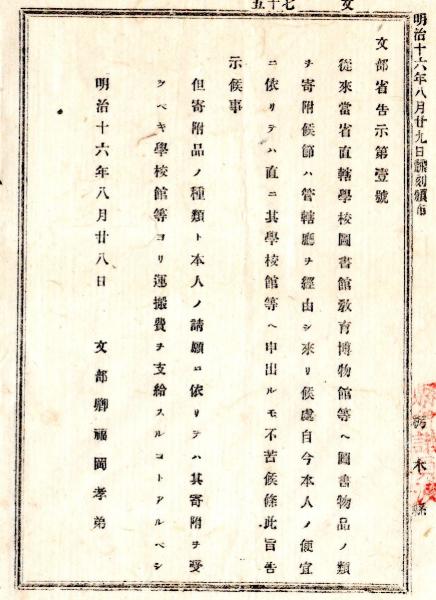 文 七十五
明治十六年八月廿九日飜刻頒布
栃木縣
文部省告示第壹號
從來當省直轄學校圖書館敎育博物館等ヘ圖書物品ノ類
ヲ寄附候節ハ管轄廳ヲ經由シ來リ候處自今本人ノ便宜
ニ依リテハ直ニ其學校館等ヘ申出ルモ不苦候條此旨告
示候事
但寄附品ノ種類ト本人ノ請願ニ依リテハ其寄附ヲ受
クベキ學校館等ヨリ運搬費ヲ支給スルコトアルベシ
明治十六年八月廿八日 文部卿福岡孝弟